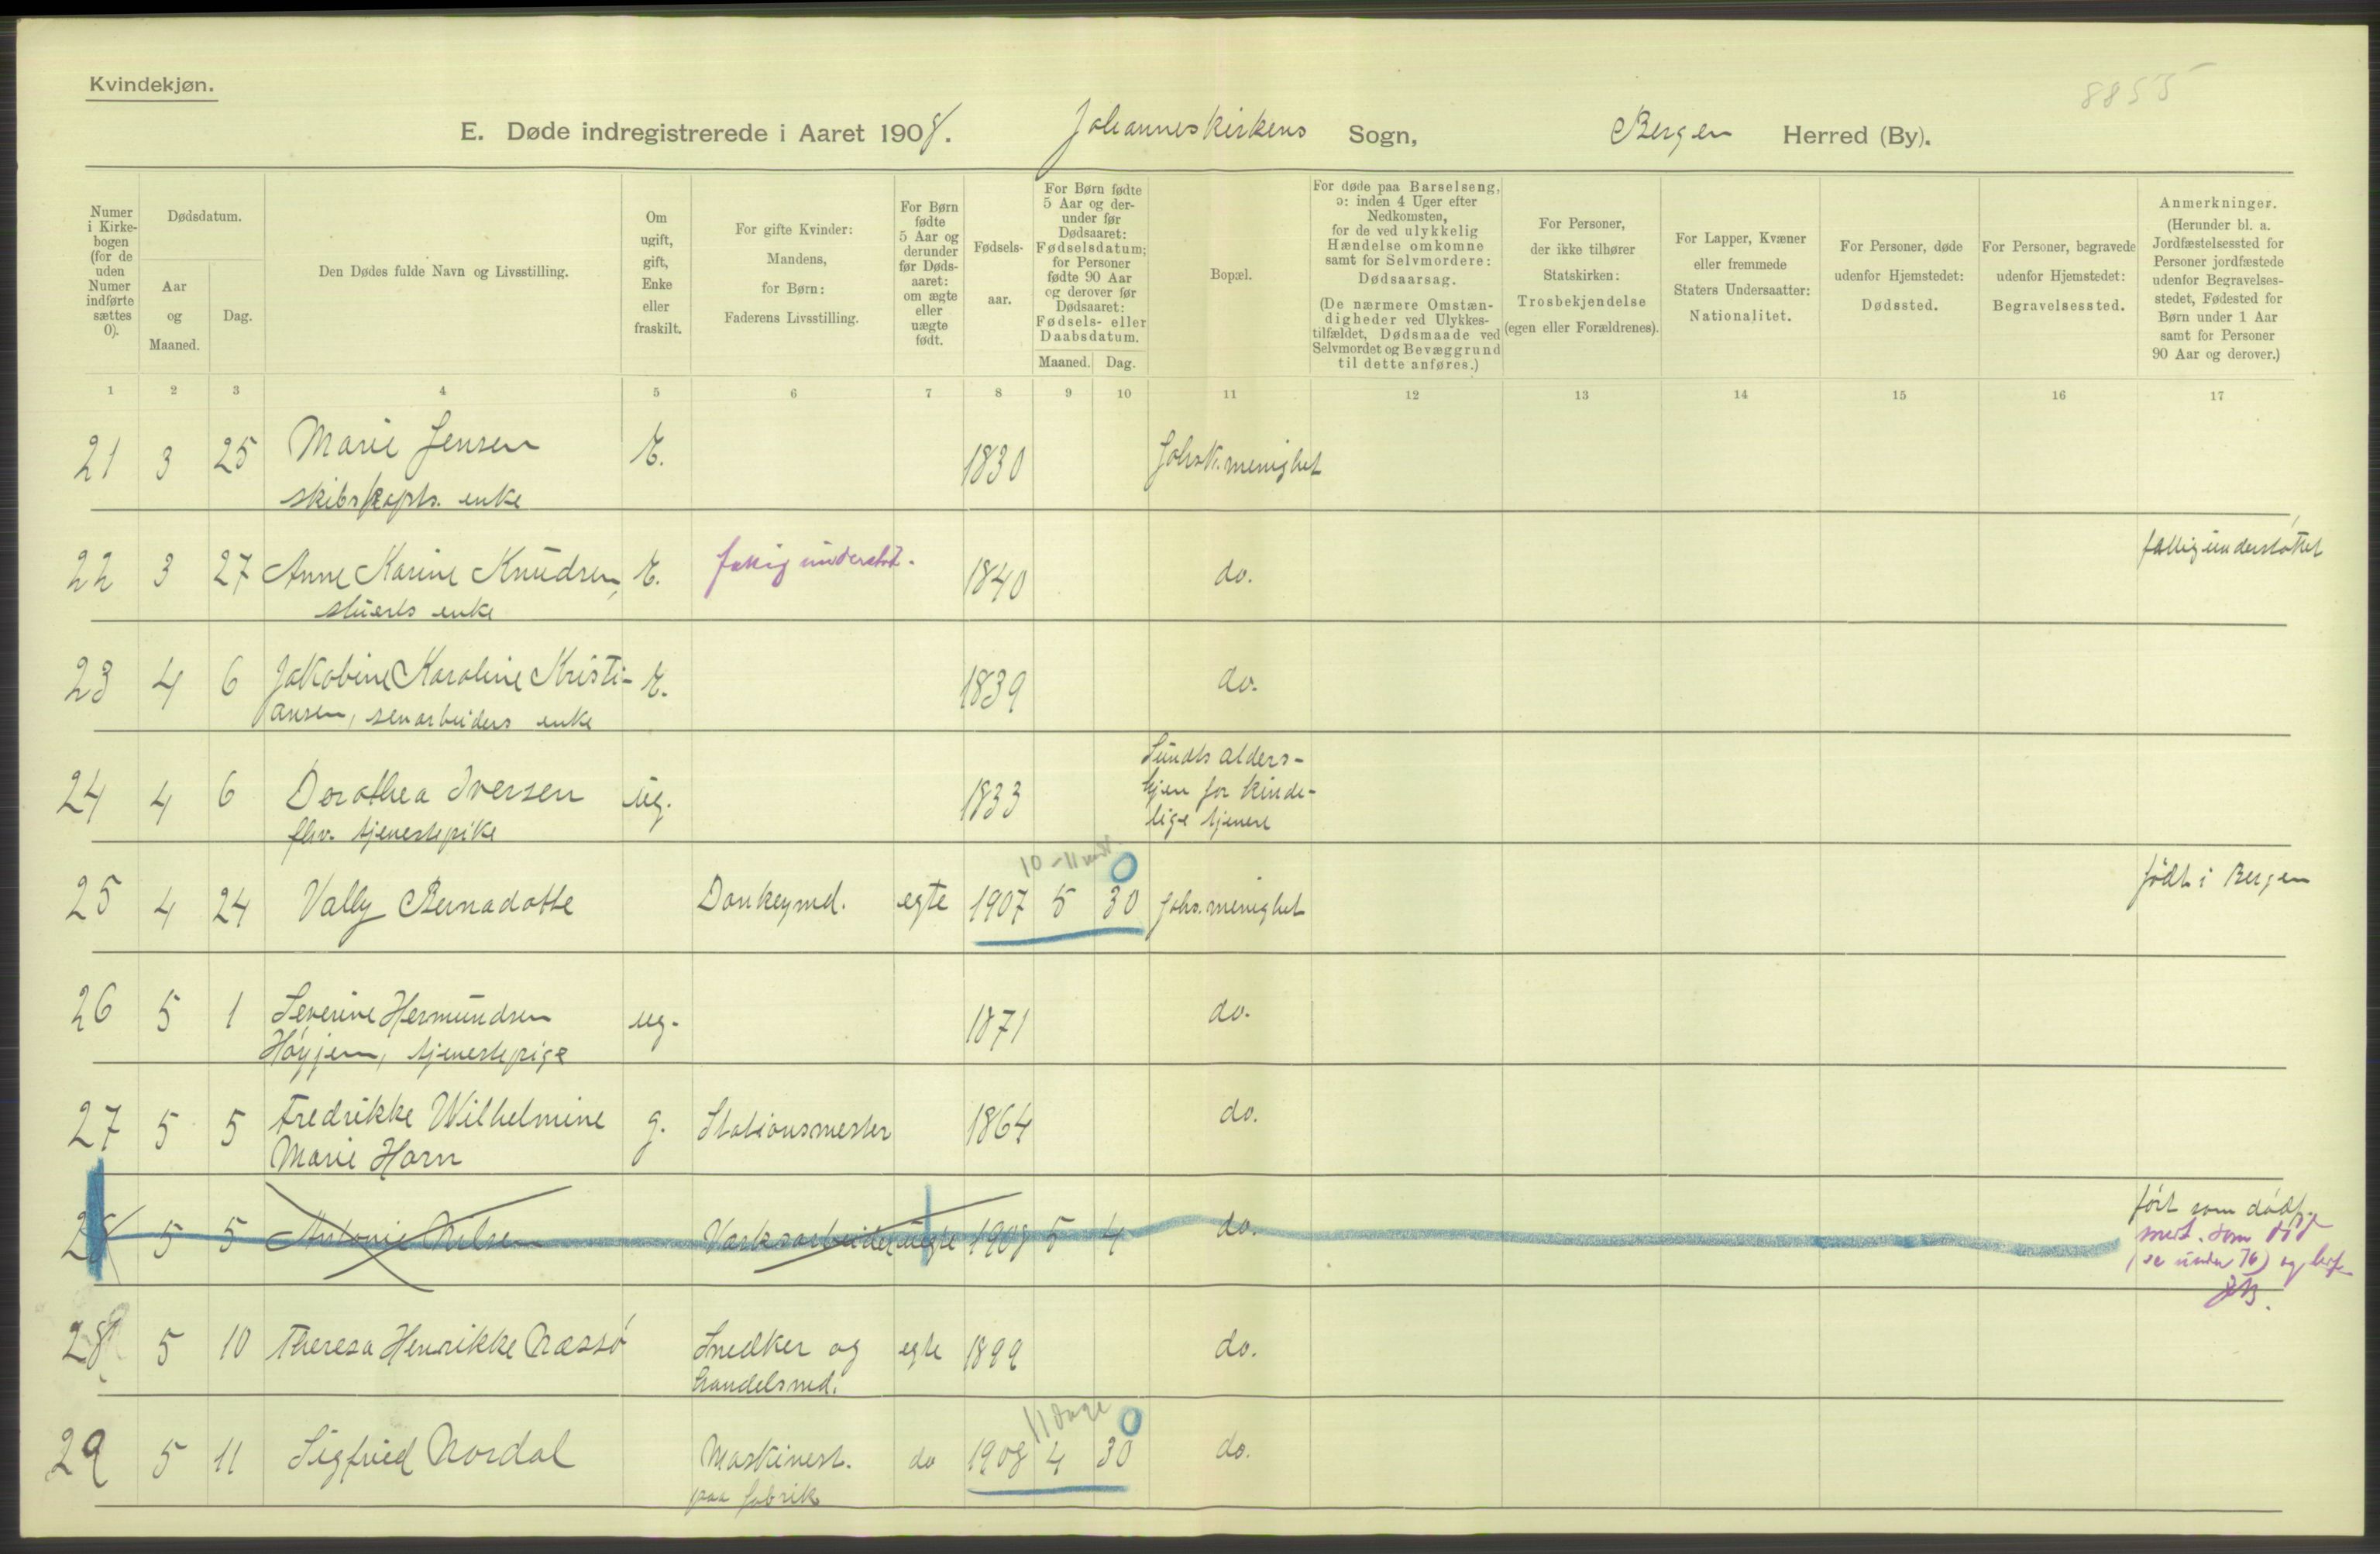 Kvindekjøn.
8855
E. Døde indregistrerede i Aaret 1908. Johanneskirkens Sogn, Bergen Herred (By).
Numer i Kirke-bogen (for de uden Numer indførte sættes 0).
Dødsdatum.
Aar og Maaned.
Dag.
Den Dødes fulde Navn og Livsstilling.
Om ugift, gift, Enke eller fraskilt.
For gifte Kvinder: Mandens, for Børn: Faderens Livsstilling.
For Børn fødte 5 Aar og derunder før Døds-aaret: om ægte eller uægte født.
Fødsels-aar.
For Børn fødte 5 Aar og der-under før Dødsaaret: Fødselsdatum; for Personer fødte 90 Aar og derover før Dødsaaret: Fødsels- eller Daabsdatum.
Maaned. Dag.
Bopæl.
For døde paa Barselseng, ɔ: inden 4 Uger efter Nedkomsten, for de ved ulykkelig Hændelse omkomne samt for Selvmordere: Dødsaarsag. (De nærmere Omstæn-digheder ved Ulykkes-tilfældet, Dødsmaade ved Selvmordet og Bevæggrund til dette anføres.)
For Personer, der ikke tilhører Statskirken: Trosbekjendelse (egen eller Forældrenes).
For Lapper, Kvæner eller fremmede Staters Undersaatter: Nationalitet.
For Personer, døde udenfor Hjemstedet: Dødssted.
For Personer, begravede udenfor Hjemstedet: Begravelsessted.
Anmerkninger. (Herunder bl. a. Jordfæstelsessted for Personer jordfæstede udenfor Begravelses-stedet, Fødested for Børn under 1 Aar samt for Personer 90 Aar og derover.)
1 2 3 4 5 6 7 8 9 10 11 12 13 14 15 16 17
21 3 25 Marie Jensen E. 1830 Johsk. menighet
skibskapts. enke
22 3 27 Anne Karine Knudsen, E. fattig underst. 1840 do. fattigunderstøttet
stuerts enke
23 4 6 Jakobine Karoline Kristi- E. 1839 do.
ansen, enke
24 4 6 Dorothea Iversen ug. 1833 Sundts alders-
hjem for kvinde-
fhv. tjenestepike lige tjenere
10-11 mdr. 0
25 4 24 Vally Bernadotte Donkeymd. egte 1907 5 30 Johs. menighet født i Bergen
26 5 1 Severine Hermundsen ug. 1871 do.
Høyjem, tjenestepige
27 5 5 Fredrikke Wilhelmine g. Stationsmester 1864 do.
Marie Horn
28 5 5 Antonie Nilsen uegte 1908 5 4 do. ført som dødf.
(se under 76) og
28 5 10 Theresa Henrikke Næssø Snedker og egte 1899 do.
handelsmd.
11 dage 0
29 5 11 Sigfried Nordal Maskinest. do 1908 4 30 do.
paa fabrik